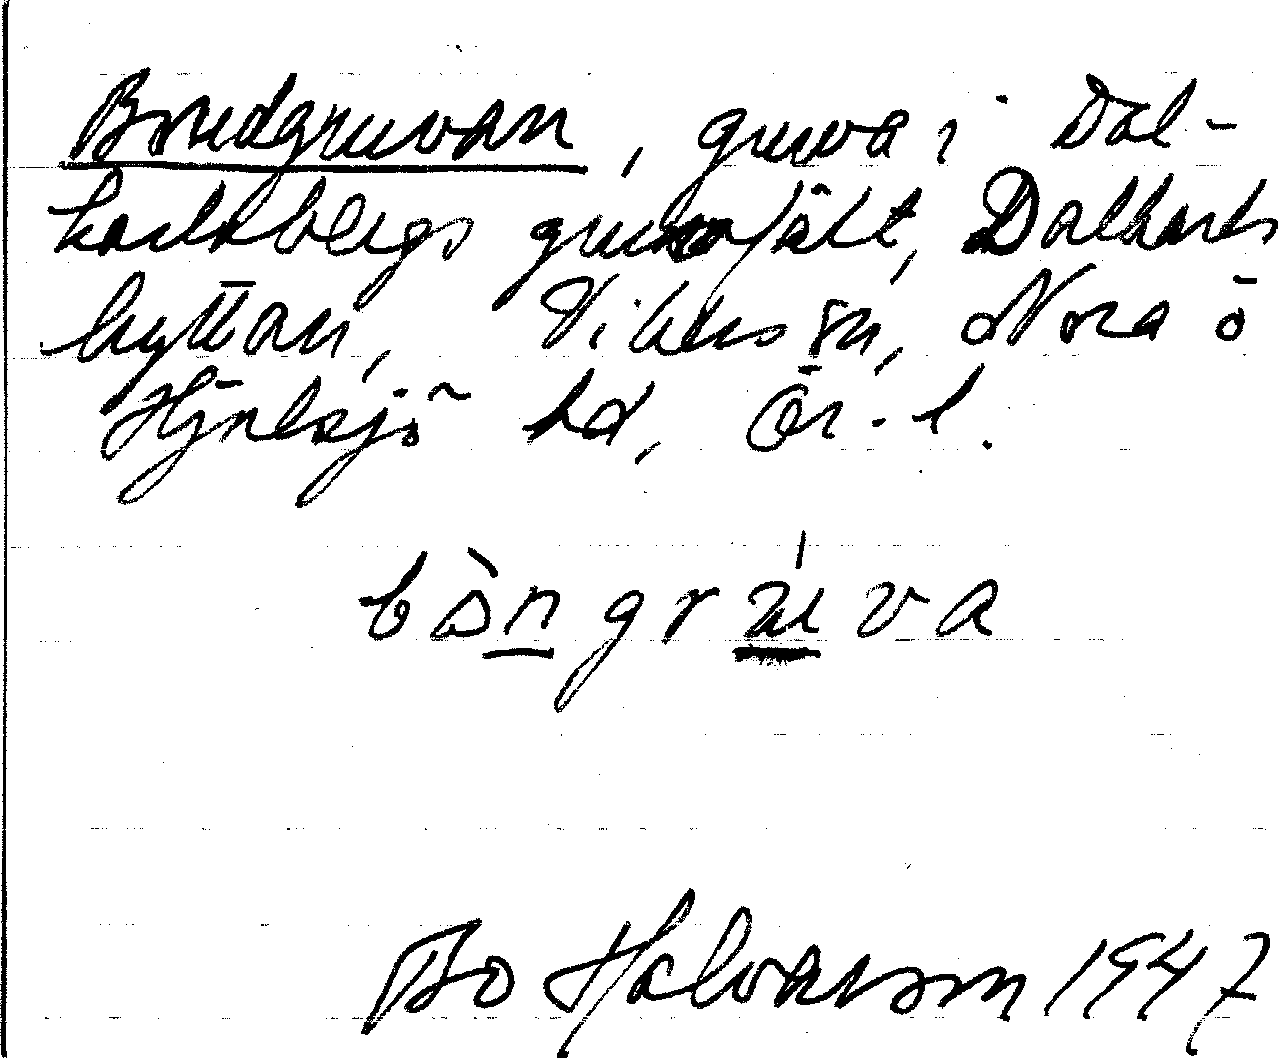 Bondgruvan, gruva i Dal-
karlsbergs gruvofält, Dalkarls
hyttan, Vikers sn, Nora o
Hjulsjö hd, Ör. l.
bòngrúva
Bo Halvarson 1947